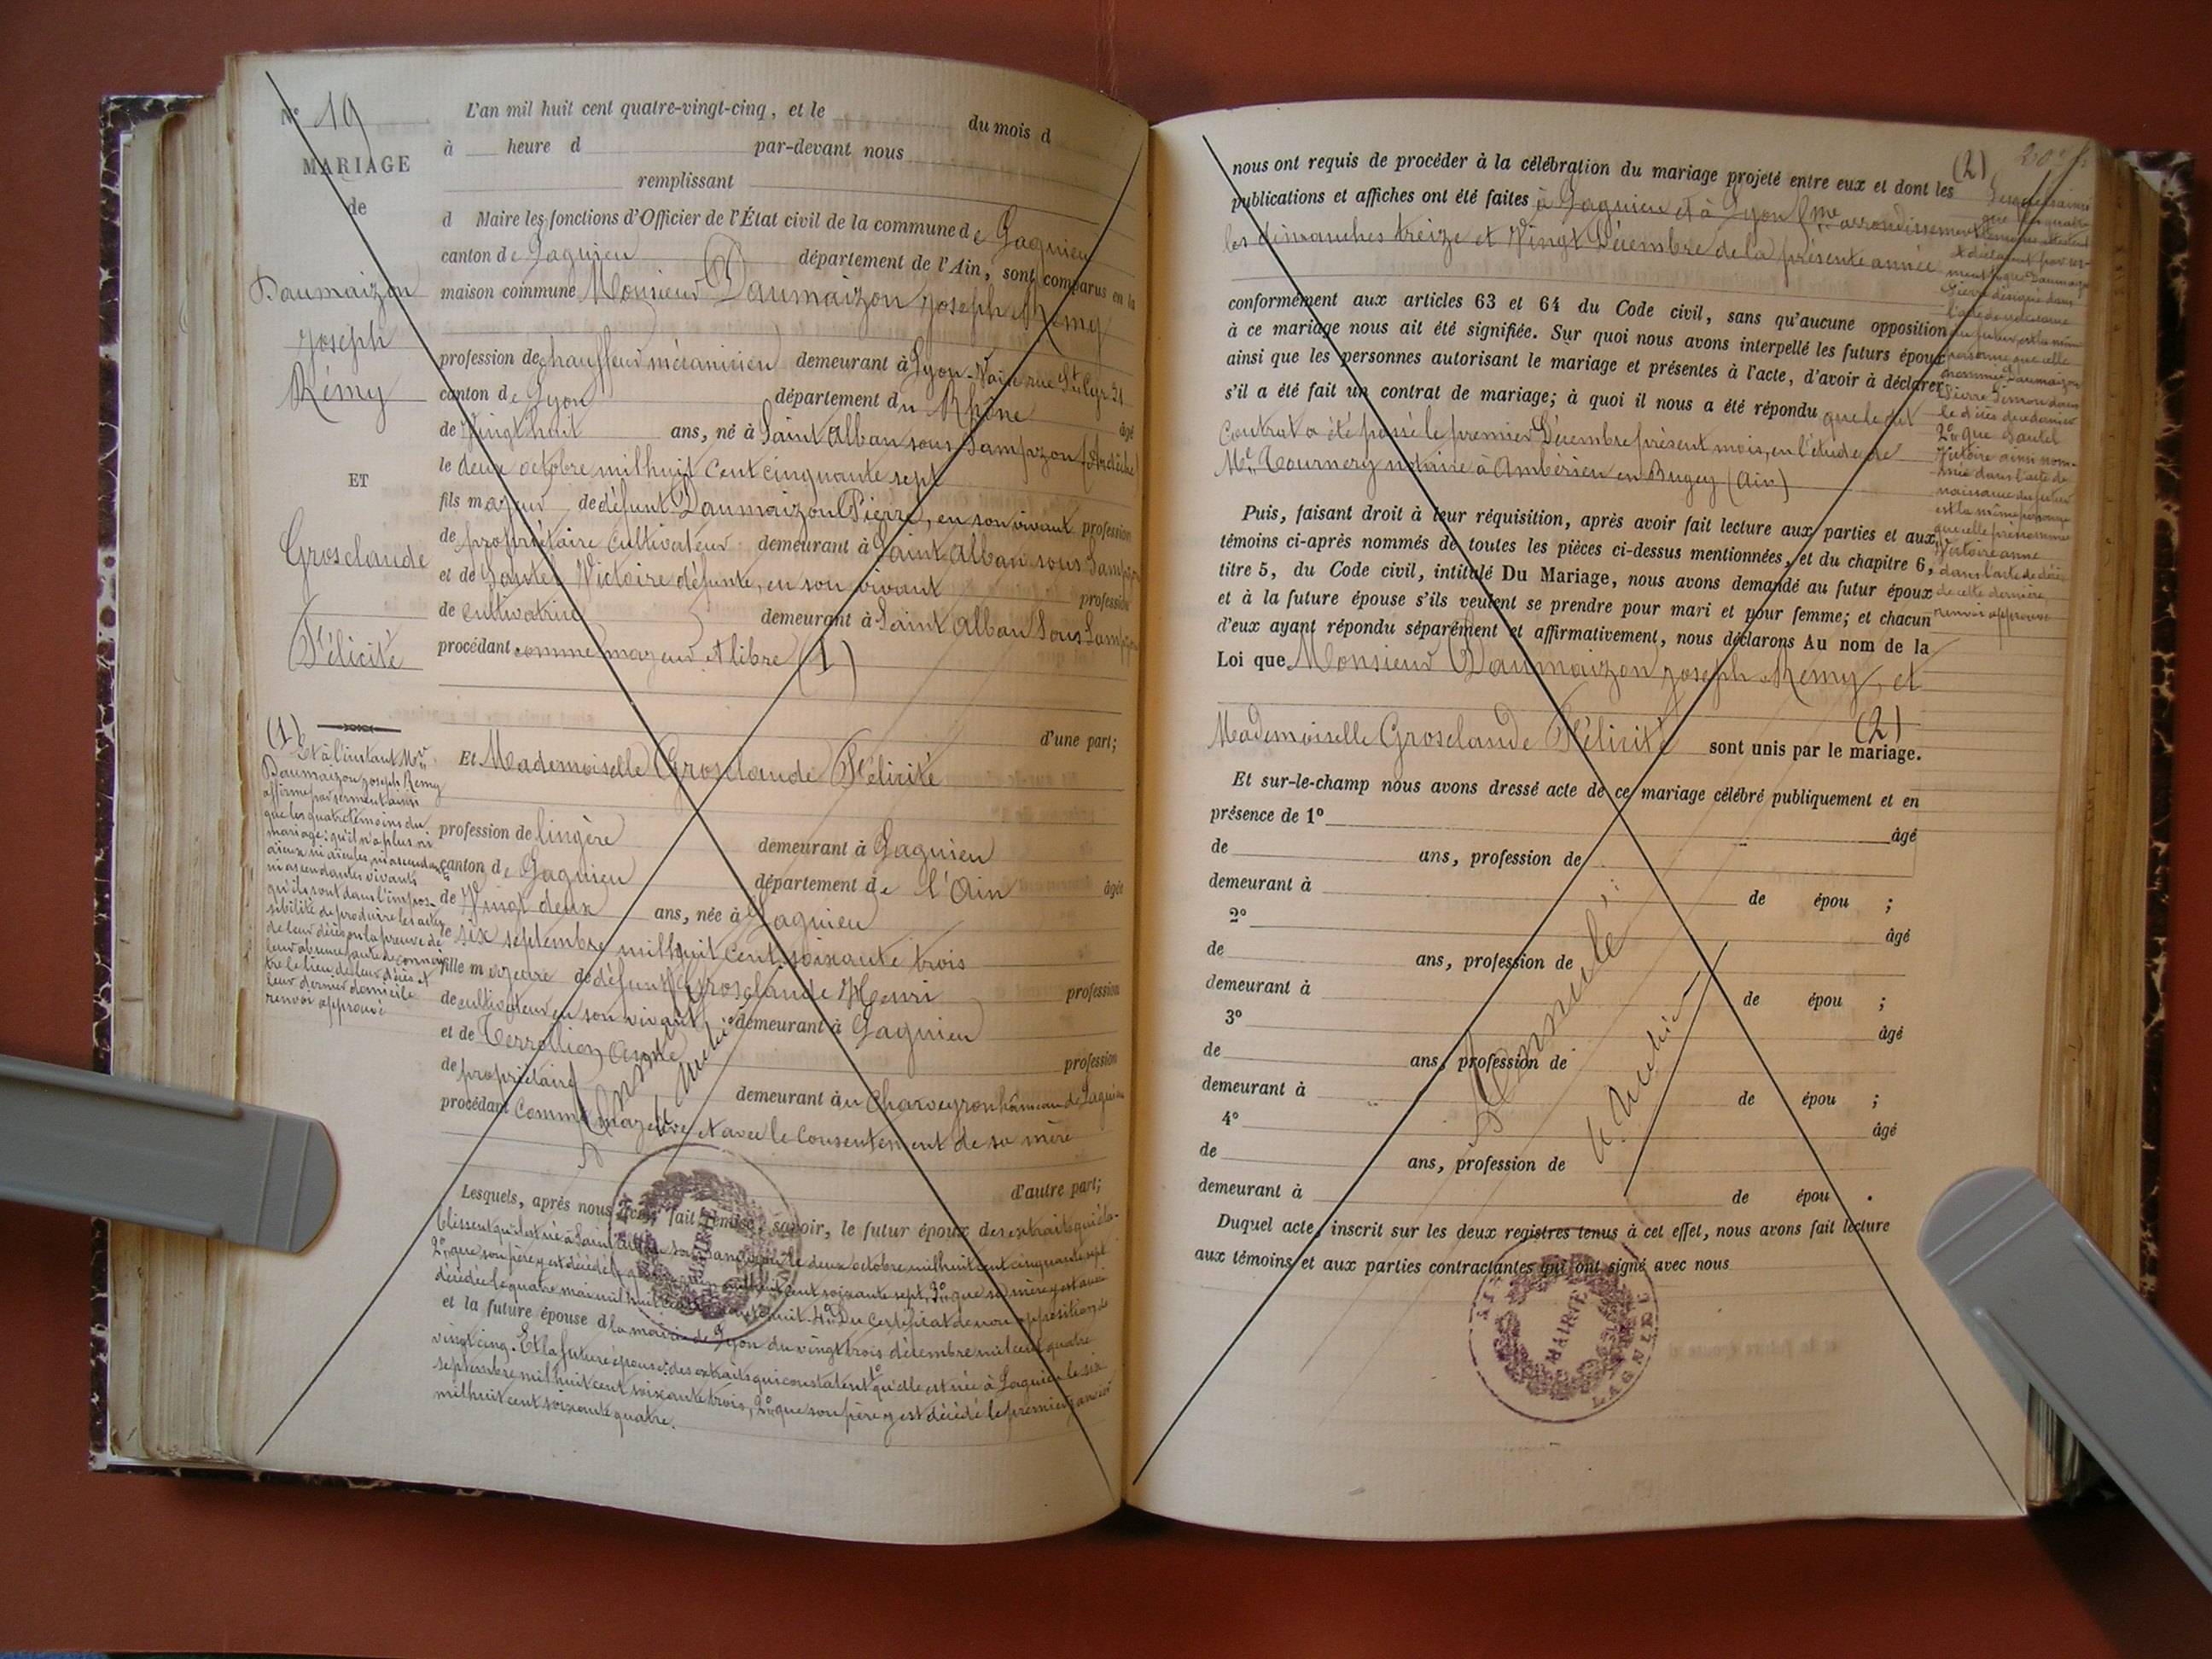 N° 19
MARIAGE
de
Daumaizon
Joseph
Rémy
ET
Grosclaude
Félicité
L'an mil huit cent quatre-vingt-cinq, et le du mois d
à heure d par-devant nous
remplissant
d Maire les fonctions d'Officier de l'État civil de la commune de Lagnieu
canton de Lagnieu département de l'Ain, sont comparus en la
maison commune Monsieur Daumaizon Joseph Rémy
profession de chauffeur mécanicien demeurant à Lyon-Vaise rue St Cyr 21
canton de Lyon département du Rhône âgé
de Vingt huit ans, né à Saint Alban sous Sampzon (Ardèche)
le deux octobre mil huit cent cinquante sept
fils majeur de défunt Daumaizon Pierre, en son vivant profession
de propriétaire cultivateur demeurant à Saint Alban sous Sampzon
et de Sautel Victoire défunte, en son vivant profession
de cultivatrice demeurant à Saint Alban Sous Sampzon
procédant comme majeur et libre (1)
d'une part;
Et Mademoiselle Grosclaude Félicité
profession de lingère demeurant à Lagnieu
canton de Lagnieu département de l'Ain âgée
de Vingt deux ans, née à Lagnieu
le six septembre mil huit cent soixante trois
fille majeure de défunt Grosclaude Henri profession
de cultivateur en son vivant demeurant à Lagnieu
et de Terrollion Anne profession
de propriétaire demeurant au Charveyron hameau de Lagnieu
procédant comme majeure et avec le consentement de sa mère
d'autre part;
Annulé
Lesquels, après nous avoir fait remise, savoir, le futur époux des extraits qui éta-
blissent qu'il est né à Saint Alban sous Sampzon le deux octobre mil huit cent cinquante sept
2° que son père y est décédé le mil huit cent soixante sept, 3° que sa mère y est aussi
décédée le quatre mai mil huit cent huit. 4° Du certificat de non opposition de
et la future épouse d la mairie de Lyon du vingt trois décembre mil cent quatre
vingt cinq. Et la future épouse: des extraits qui constatent 1° qu'elle est née à Lagnieu le six
septembre mil huit cent soixante trois, 2° que son père y est décédé le premier janvier
mil huit cent soixante quatre.
MAIRIE
(1)
Et à l'instant Mr
Daumaizon Joseph Rémy
affirme par serment ainsi
que les quatre témoins du
mariage: qu'il n'a plus ni
aïeux ni aïeules, ni ascendants
ni ascendantes vivants
qu'ils sont dans l'impos-
sibilité de produire les actes
de leur décès ou la preuve de
leur absence faute de connaî-
tre le lieu de leur décès et
leur dernier domicile
renvoi approuvé
nous ont requis de procéder à la célébration du mariage projeté entre eux et dont les
publications et affiches ont été faites à Lagnieu et à Lyon arrondissement
les dimanches treize et Vingt Décembre de la présente année
conformément aux articles 63 et 64 du Code civil, sans qu'aucune opposition
à ce mariage nous ait été signifiée. Sur quoi nous avons interpellé les futurs époux
ainsi que les personnes autorisant le mariage et présentes à l'acte, d'avoir à déclarer
s'il a été fait un contrat de mariage; à quoi il nous a été répondu que le dit
Contrat a été passé le premier Décembre présent mois, en l'étude de
Me Tournery notaire à Ambérieu en Bugey (Ain)
Puis, faisant droit à leur réquisition, après avoir fait lecture aux parties et aux
témoins ci-après nommés de toutes les pièces ci-dessus mentionnées, et du chapitre 6,
titre 5, du Code civil, intitulé Du Mariage, nous avons demandé au futur époux
et à la future épouse s'ils veulent se prendre pour mari et pour femme; et chacun
d'eux ayant répondu séparément et affirmativement, nous déclarons Au nom de la
Loi que Monsieur Daumaizon Joseph Rémy, et
Mademoiselle Grosclaude Félicité (2) sont unis par le mariage.
Et sur-le-champ nous avons dressé acte de ce mariage célébré publiquement et en
présence de 1° âgé
de ans, profession de
demeurant à de épou ;
2° âgé
de ans, profession de
demeurant à de épou ;
3° âgé
de ans, profession de
demeurant à de épou ;
4° âgé
de ans, profession de
demeurant à de épou .
Annulé
Duquel acte, inscrit sur les deux registres tenus à cet effet, nous avons fait lecture
aux témoins et aux parties contractantes qui ont signé avec nous
MAIRIE
LAGNIEU
(2)
Lesquels ainsi
que les quatre
témoins attestent
et déclarent par ser-
ment que Daumaizon
Pierre désigné dans
l'acte de naissance
du futur, est la même
personne que celle
nommée Daumaizon
Pierre Simon dans
le d'décès de dernier
2° que Sautel
Victoire ainsi nom-
mée dans l'acte de
naissance du futur
est la même personne
que celle prénommée
Victoire anne
dans l'acte de décès
de cette dernière
renvoi approuvé